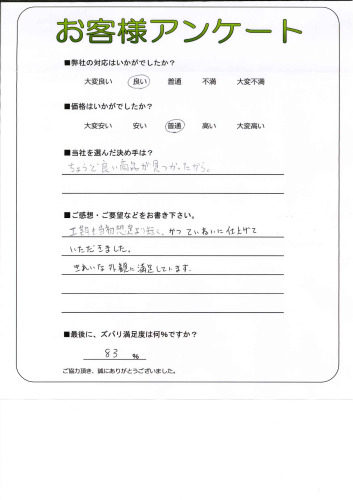 お客様アンケート
■弊社の対応はいかがでしたか？
大変良い 良い 普通 不満 大変不満
■価格はいかがでしたか？
大変安い 安い 普通 高い 大変高い
■当社を選んだ決め手は？
ちょうど良い商品が見つかったから。
■ご感想・ご要望などをお書き下さい。
工期も当初想定より短く、かつていねいに仕上げて
いただきました。
きれいな外観に満足しています。
■最後に、ズバリ満足度は何％ですか？
83 %
ご協力頂き、誠にありがとうございました。